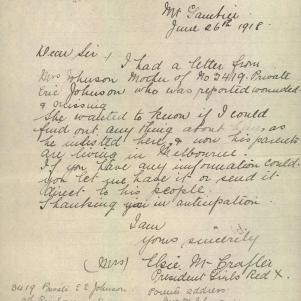 Mt Gambier
June 26th 1918.
Dear Sir,
I had a letter from
Mrs Johnson Mother of No 3419. Private
Eric Johnson who was reported wounded
& missing
She wanted to know if I could
find out any thing about as
he enlisted here, & now his parents
are living in Melbourne.
If you have any information could
you let me have it or send it
direct to his people.
Thanking you in anticipation.
I am
yours sincerely
(Mrs) Elsie
President Girls Red X.
3419 Private E E Johnson
Parents address